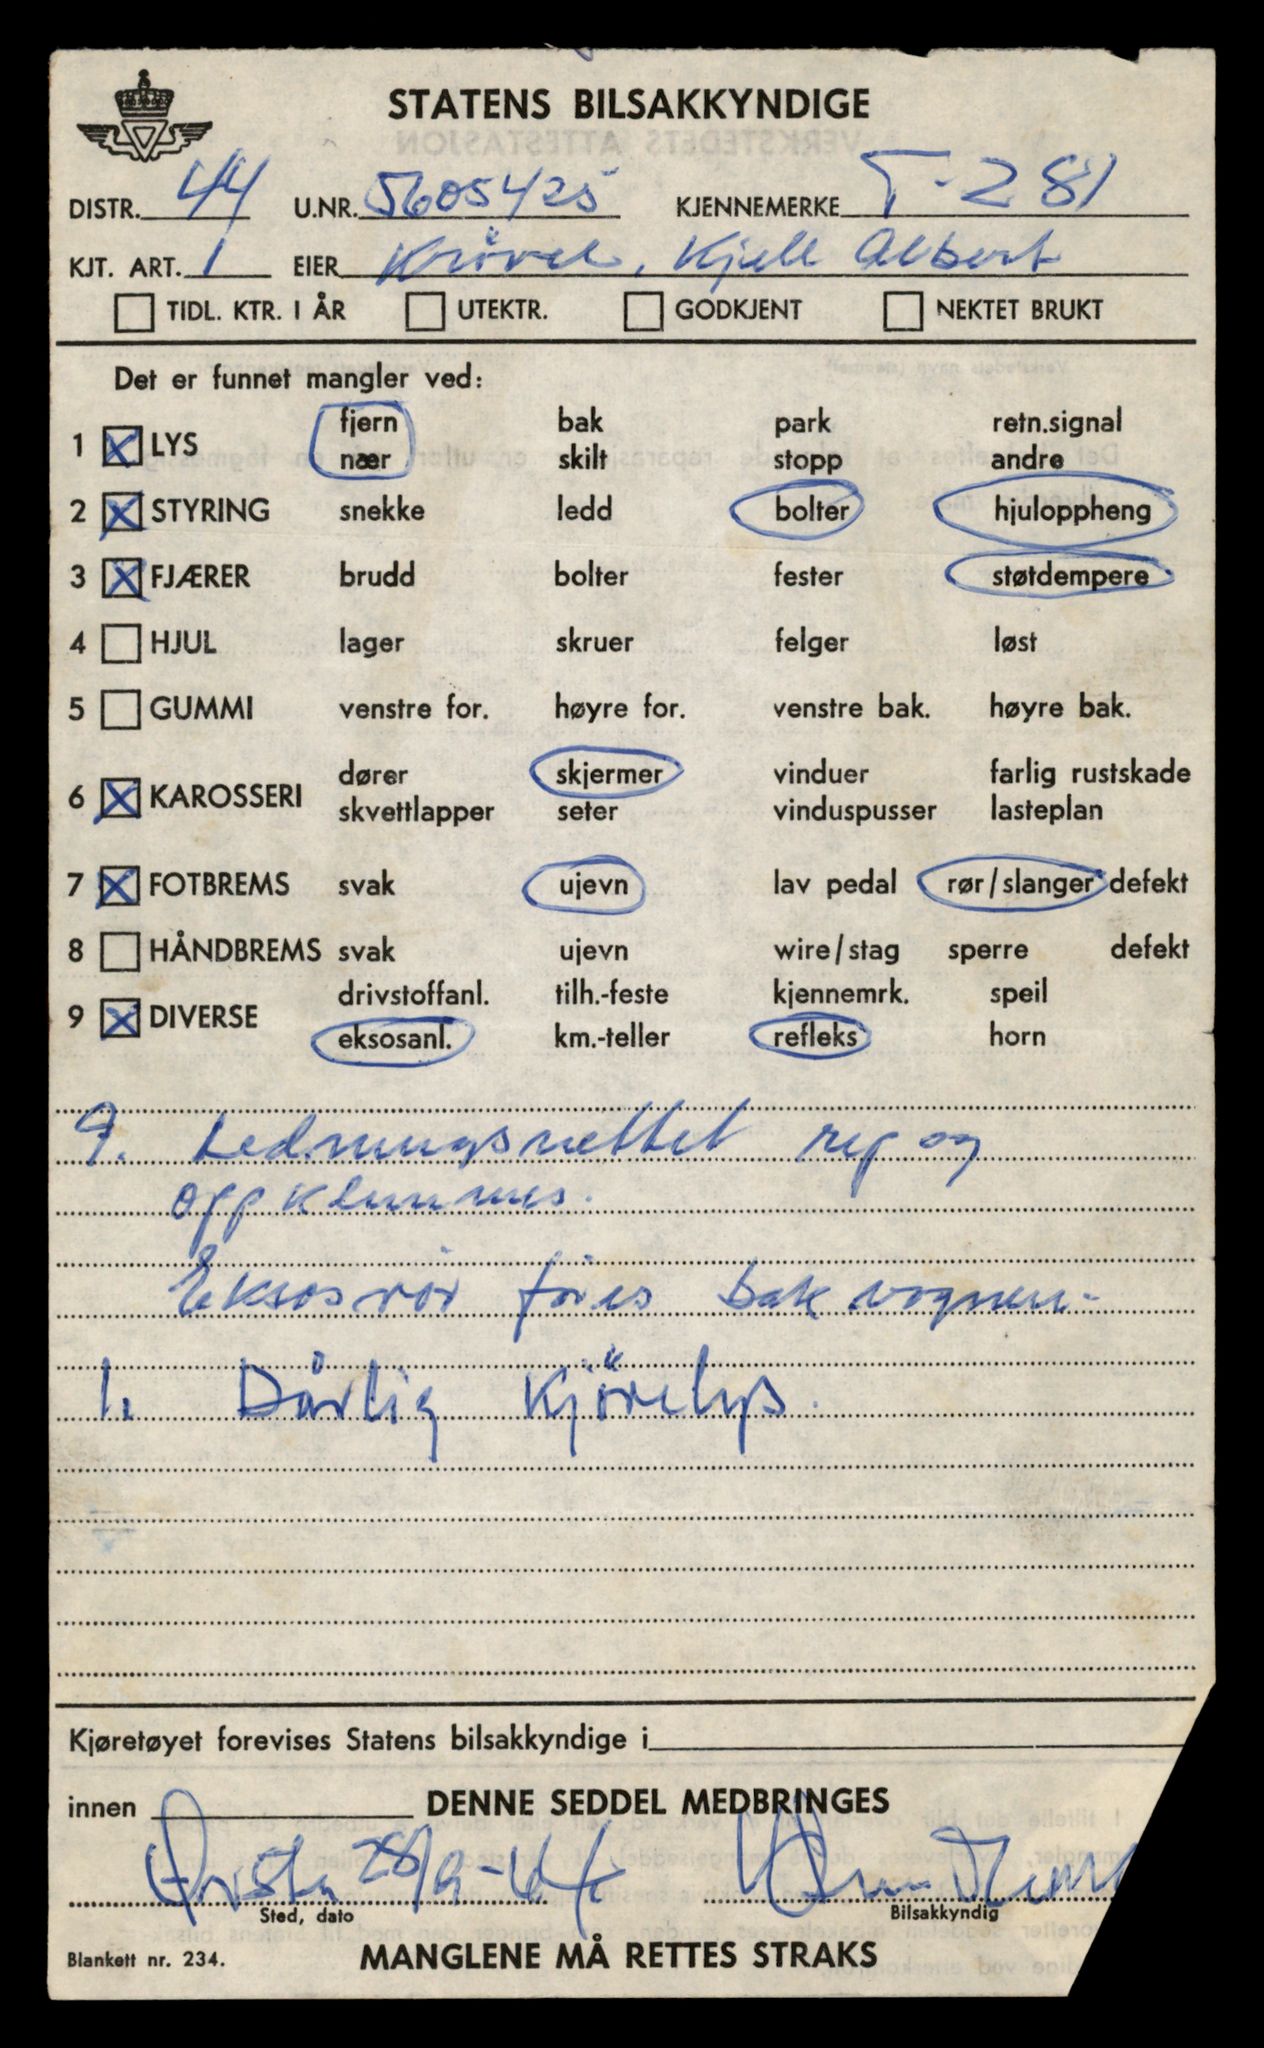 STATENS BILSAKKYNDIGE
DISTR. 44 U.NR. 5605425 KJENNEMERKE T-281
KJT. ART. 1 EIER Krövel, Kjell Albert
TIDL. KTR. I ÅR UTEKTR. GODKJENT NEKTET BRUKT
Det er funnet mangler ved:
fjern bak park retn.signal
1 LYS
nær skilt stopp andre
2 STYRING snekke ledd bolter hjuloppheng
3 FJÆRER brudd bolter fester støtdempere
4 HJUL lager skruer felger løst
5 GUMMI venstre for. høyre for. venstre bak. høyre bak.
dører skjermer vinduer farlig rustskade
6 KAROSSERI
skvettlapper seter vinduspusser lasteplan
7 FOTBREMS svak ujevn lav pedal rør/slanger defekt
8 HÅNDBREMS svak ujevn wire/stag sperre defekt
drivstoffanl. tilh.-feste kjennemrk. speil
9 DIVERSE
eksosanl. km.-teller refleks horn
9. Ledningsnettet rep og
oppklammes.
Eksosrör föres bak vognen.
1. Dårlig kjörelys.
Kjøretøyet forevises Statens bilsakkyndige i
innen DENNE SEDDEL MEDBRINGES
28/9-64
Sted, dato Bilsakkyndig
Blankett nr. 234. MANGLENE MÅ RETTES STRAKS